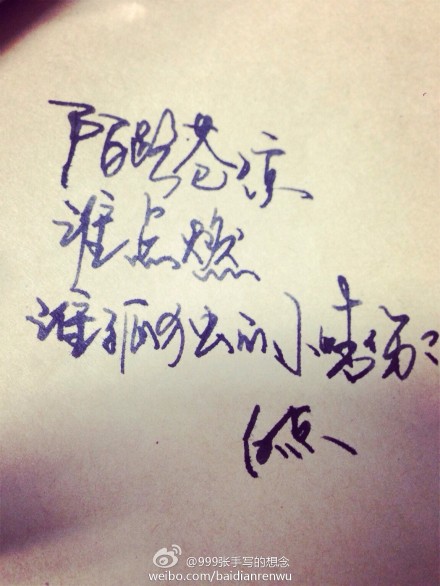 陌路苍凉
谁点燃
谁孤 出的小
白点
@999张手写的想念
weibo.com/baidianrenwu